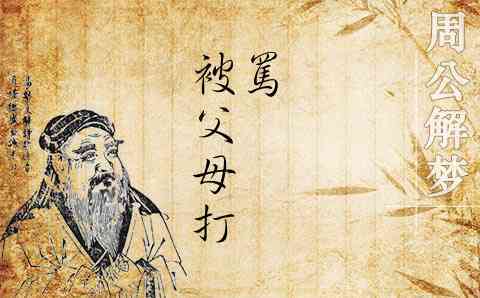 周公解梦
罵
被父母打